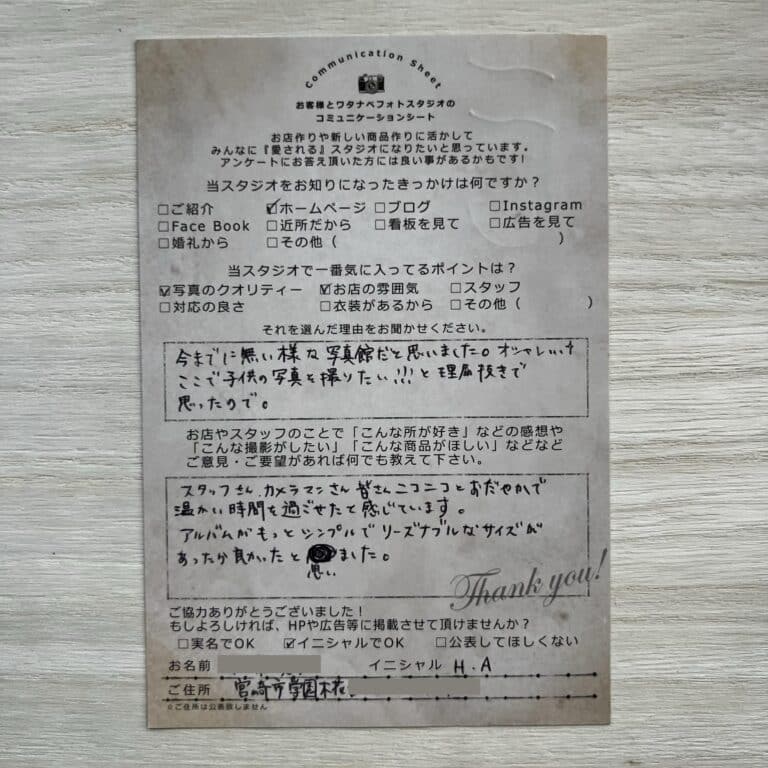 Communication Sheet
お客様とワタナベフォトスタジオの
コミュニケーションシート
お店作りや新しい商品作りに活かして
みんなに『愛される』スタジオになりたいと思っています。
アンケートにお答え頂いた方には良い事があるかもです!
当スタジオをお知りになったきっかけは何ですか?
□ご紹介 ☑ホームページ □ブログ □Instagram
□Face Book □近所だから □看板を見て □広告を見て
□婚礼から □その他( )
当スタジオで一番気に入ってるポイントは?
☑写真のクオリティー ☑お店の雰囲気 □スタッフ
□対応の良さ □衣装があるから □その他( )
それを選んだ理由をお聞かせください。
今までに無い様な写真館だと思いました。オシャレ
ここで子供の写真を撮りたい!!!と理屈抜きで
思ったので。
お店やスタッフのことで「こんな所が好き」などの感想や
「こんな撮影がしたい」「こんな商品がほしい」などなど
ご意見・ご要望があれば何でも教えて下さい。
スタッフさん、カメラマンさん皆さんニコニコとおだやかで
温かい時間を過ごせたと感じています。
アルバムがもっとシンプルでリーズナブルなサイズが
あったら良かったと思いました。
Thank you!
ご協力ありがとうございました!
もしよろしければ、HPや広告等に掲載させて頂けませんか?
□実名でOK ☑イニシャルでOK □公表してほしくない
お名前 イニシャル H.A
ご住所 宮崎市学園木花
☆ご住所は公表致しません